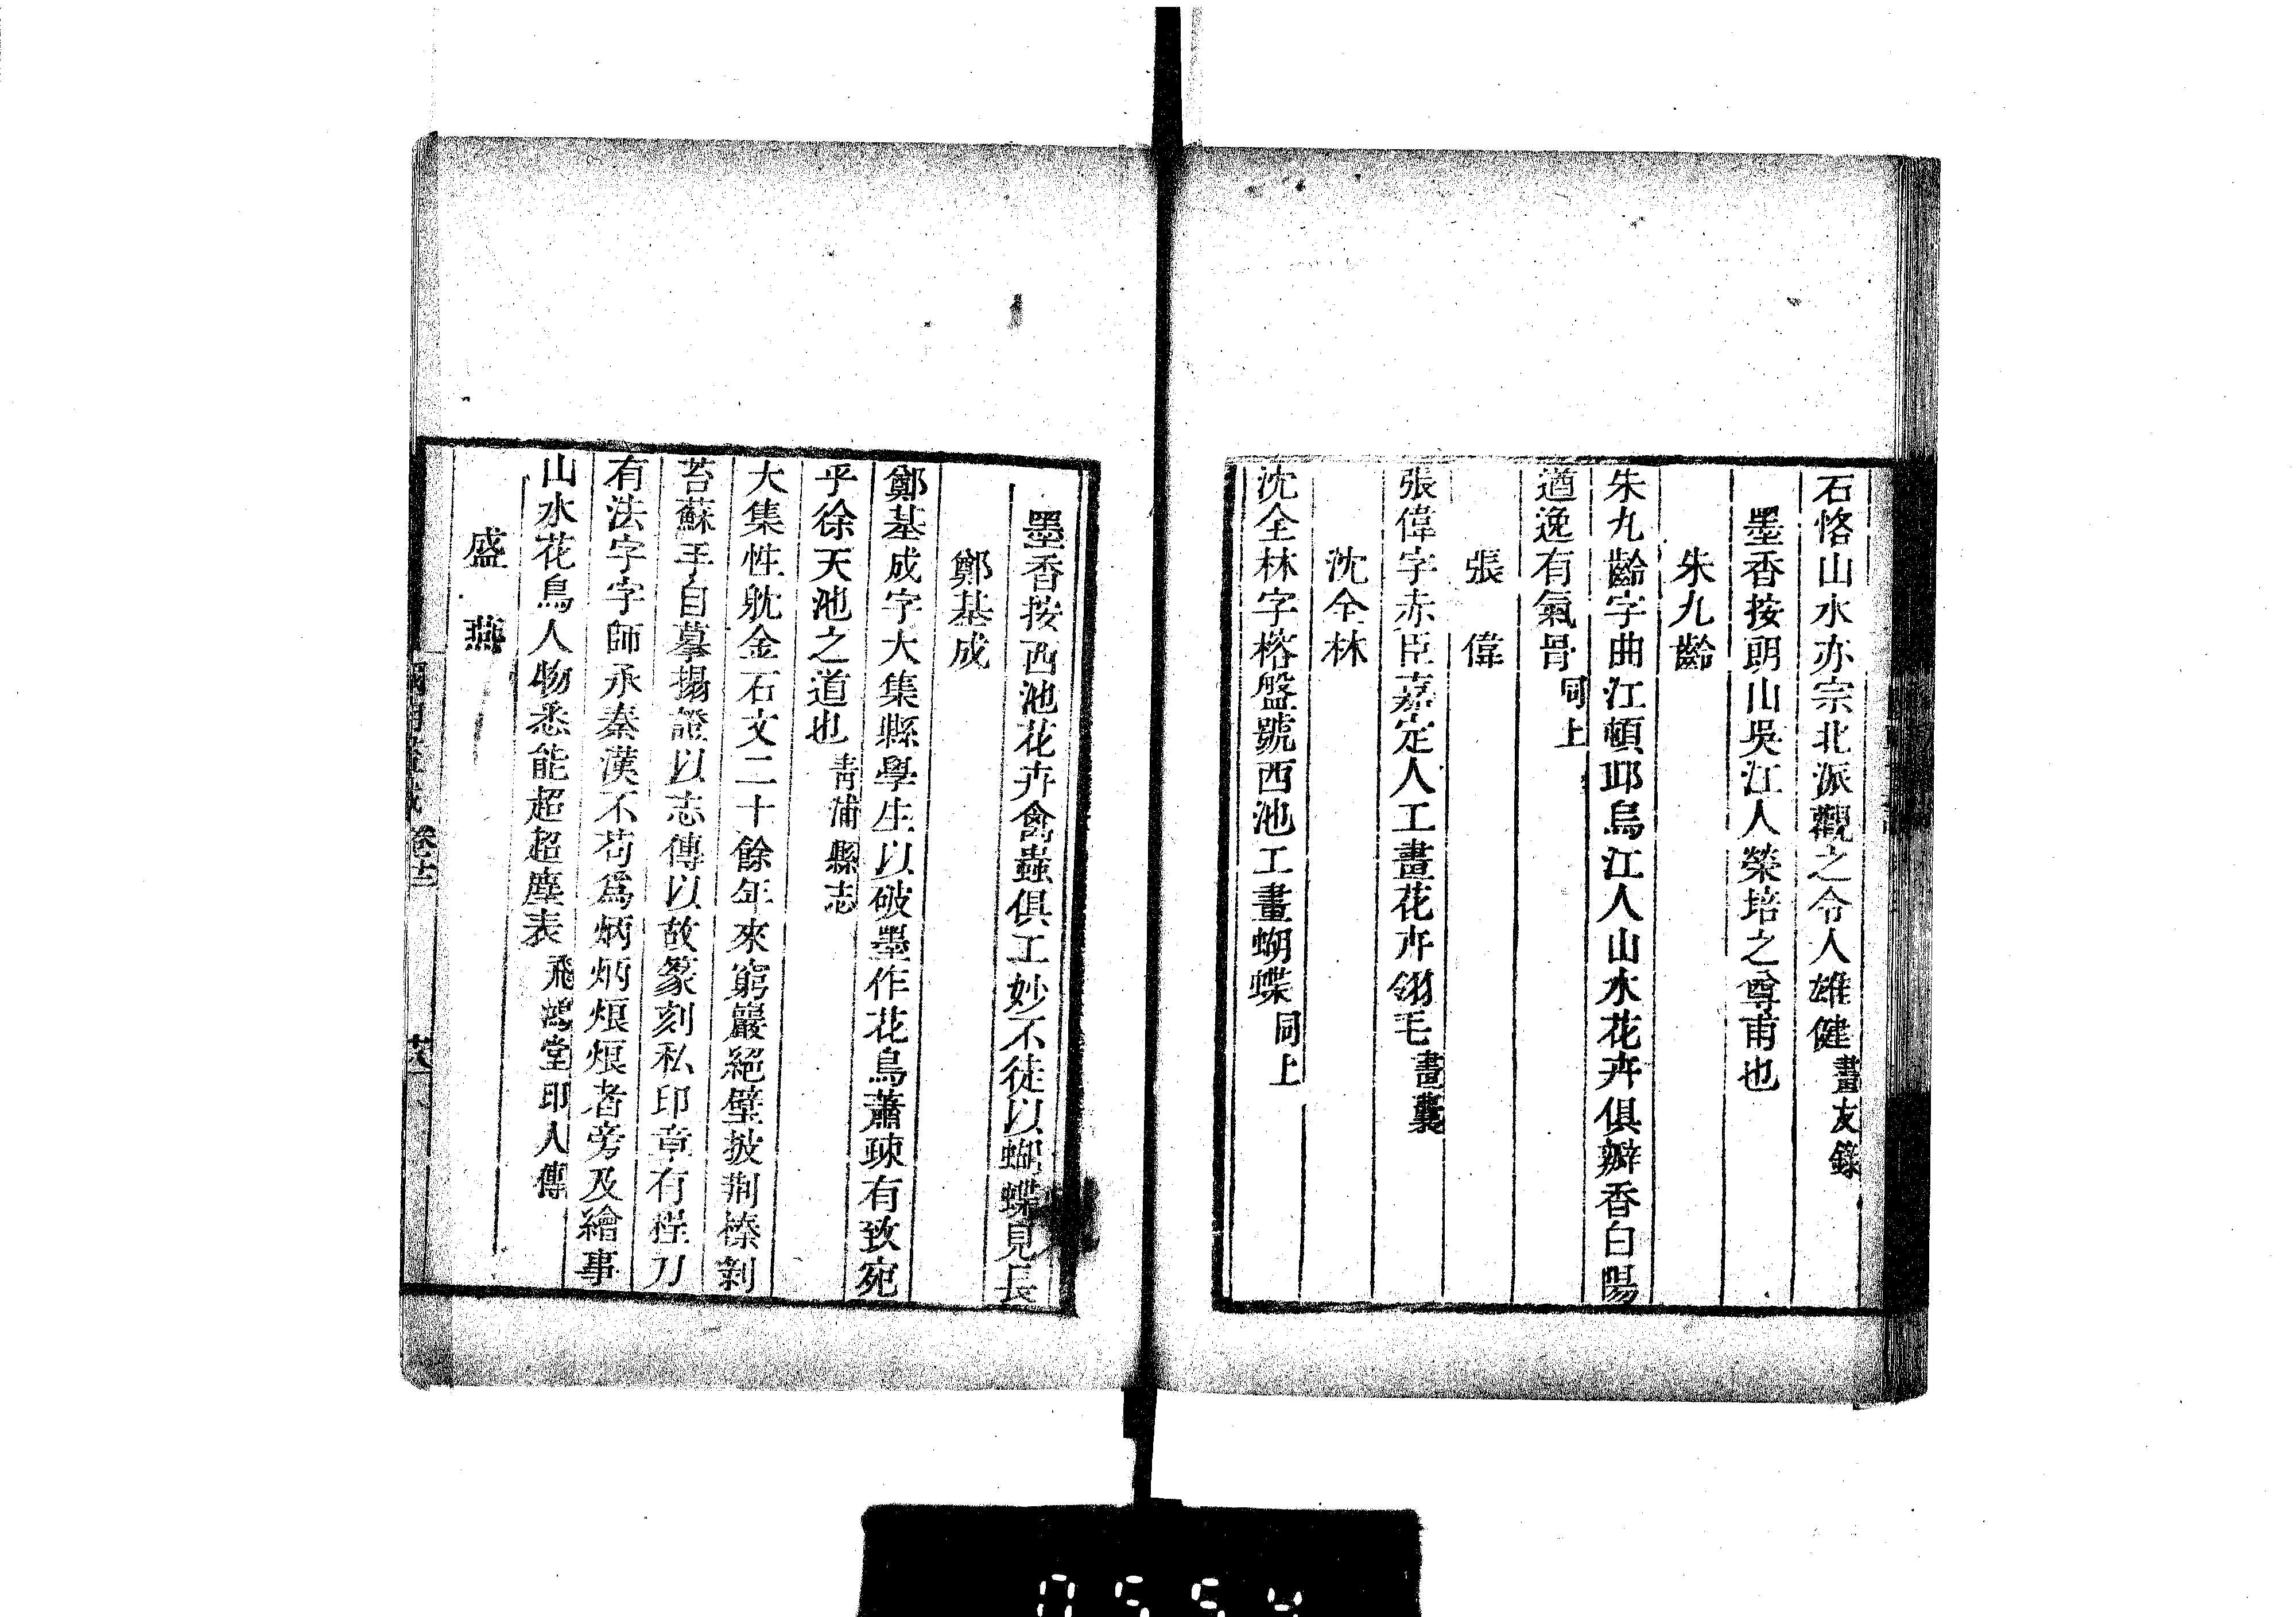 石恪山水亦宗北派觀之令人雄健畫友錄
墨香按朗山吳江人榮培之尊甫也
朱九齡
朱九齡字曲江頓邱烏江人山水花卉俱瓣香白陽
遒逸有氣骨同上
張偉
張偉字赤臣嘉定人工畫花卉翎毛畫囊
沈全林
沈全林字榕盤號西池工畫蝴蝶同上
墨香按西池花卉禽蟲俱工妙不徒以蝴蝶見長
鄭基成
鄭基成字大集縣學生以破墨作花鳥蕭疎有致宛
乎徐天池之道也青浦縣志
大集性躭金石文二十餘年來窮巖絕壁披荆榛剝
苔蘇手自摹搨證以志傳以故篆刻私印章有桯刀
有法字字師承秦漢不苟爲炳炳烺烺者旁及繪事
山水花鳥人物悉能超超塵表飛鴻堂印人傳
盛燕
卷十二
0554